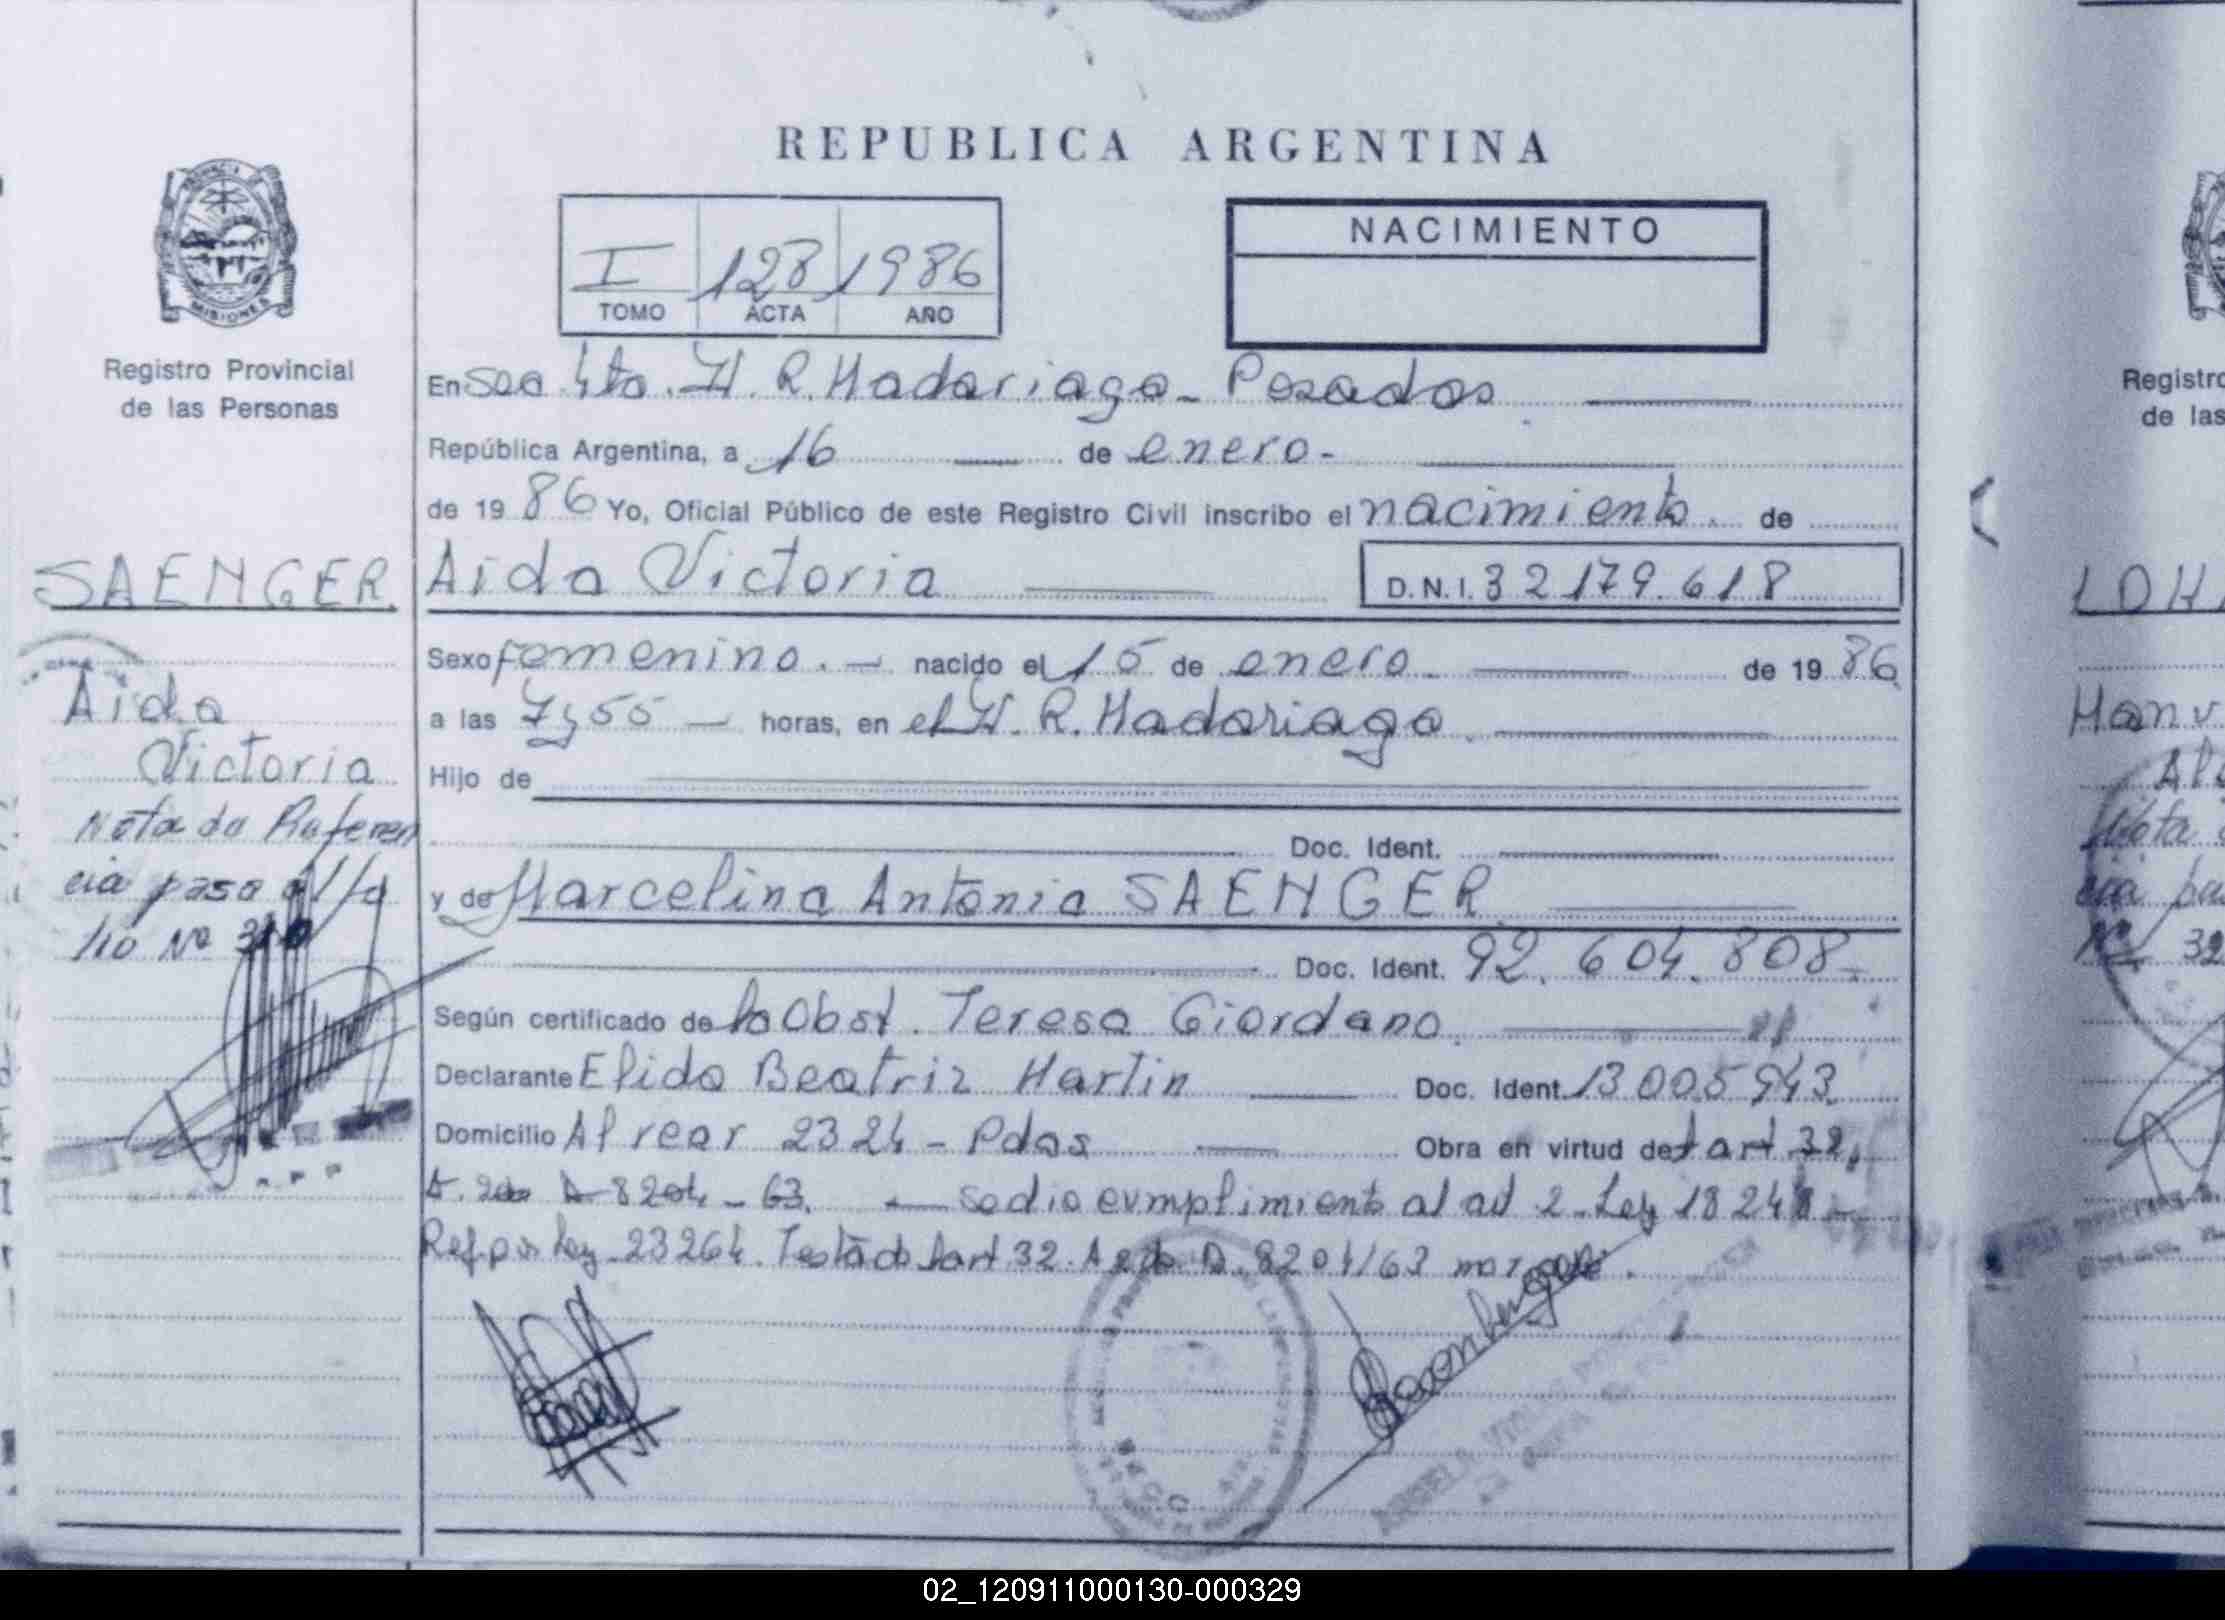 REPUBLICA ARGENTINA
PROVINCIA DE
MISIONES
Registro Provincial
de las Personas
I 128 1986
TOMO ACTA AÑO
NACIMIENTO
En Sec 4ta. H. R. Madariaga - Posadas
República Argentina, a 16 de enero.-
de 19 86 Yo, Oficial Público de este Registro Civil inscribo el nacimiento. de
SAENGER
Aida Victoria
D.N.I. 32179.618
Sexo femenino.- nacido el 15 de enero. de 19 86
a las 7 y 55 horas, en el H. R. Madariaga.
Aida
Victoria
Nota de Referen
cia pasa al fo
lio Nº
Hijo de
Doc. Ident.
y de Marcelina Antonia SAENGER
Doc. Ident. 92.604.808.-
Según certificado de la Obst. Teresa Giordano.
Declarante Elida Beatriz Martin Doc. Ident. 13005943
Domicilio Alvear 2324 - Pdas Obra en virtud de art 32,
D 8204 - 63. se dio cumplimiento al art 2 - Ley 18248
Ref por Ley 23264. Testado art 32. D. 8204/63
Registro
de las
LOH
Manu
Nota
Nº 32
02_120911000130-000329